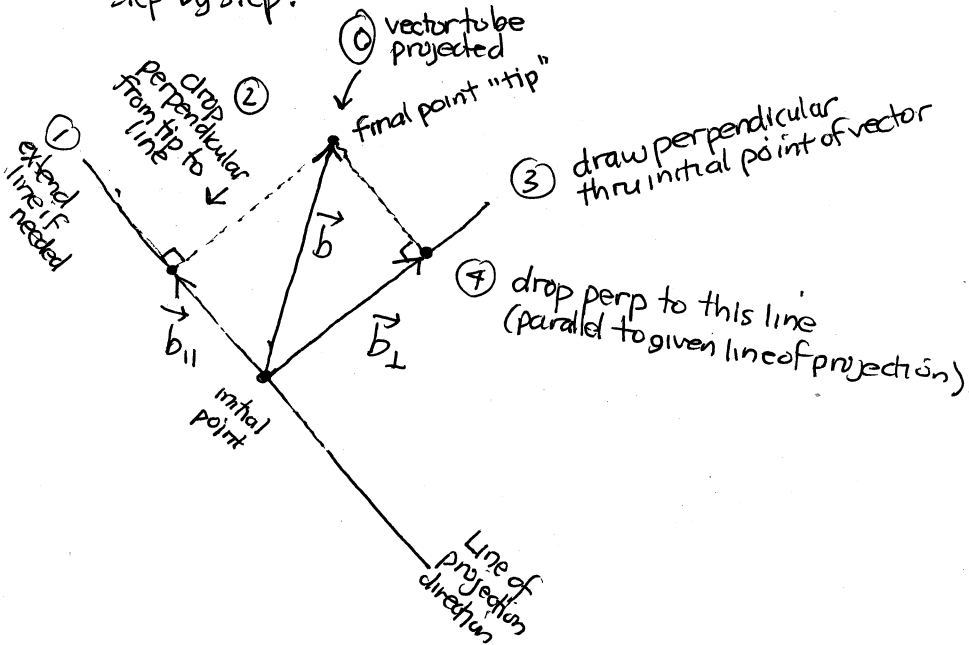 step by step:
⓪ vector to be
projected
final point "tip"
② drop
perpendicular
from tip to
line
① extend
line if
needed
③ draw perpendicular
thru initial point of vector
④ drop perp to this line
(parallel to given line of projection)
b
b||
b⊥
initial
point
Line of
projection
direction